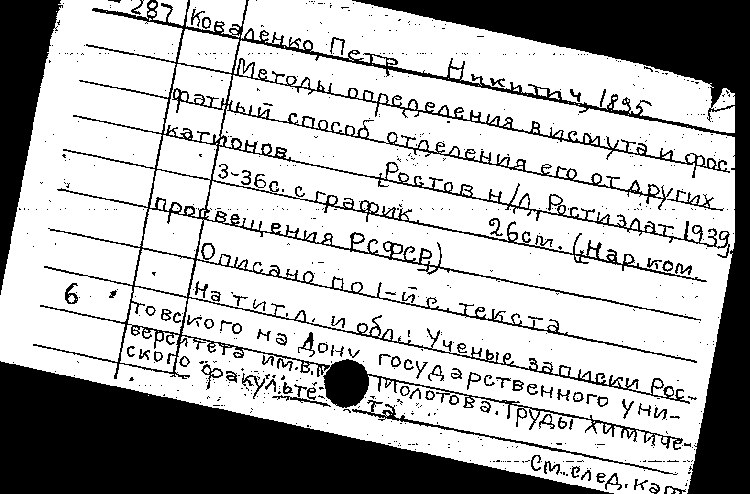 -287 Коваленко, Петр Никитич, 1895
Методы определения висмута и фос-
фатный способ отделения его от других
катионов. [Ростов н/Д, Ростиздат, 1939.
3-36с. с график. 26см. (Нар. ком.
просвещения РСФСР).
Описано по 1-й с. текста.
6 На тит.л. и обл.: Ученые записки Рос-
товского на Дону государственного уни-
верситета им. В.М. Молотова. Труды химиче-
ского факультета.
См. след. кат